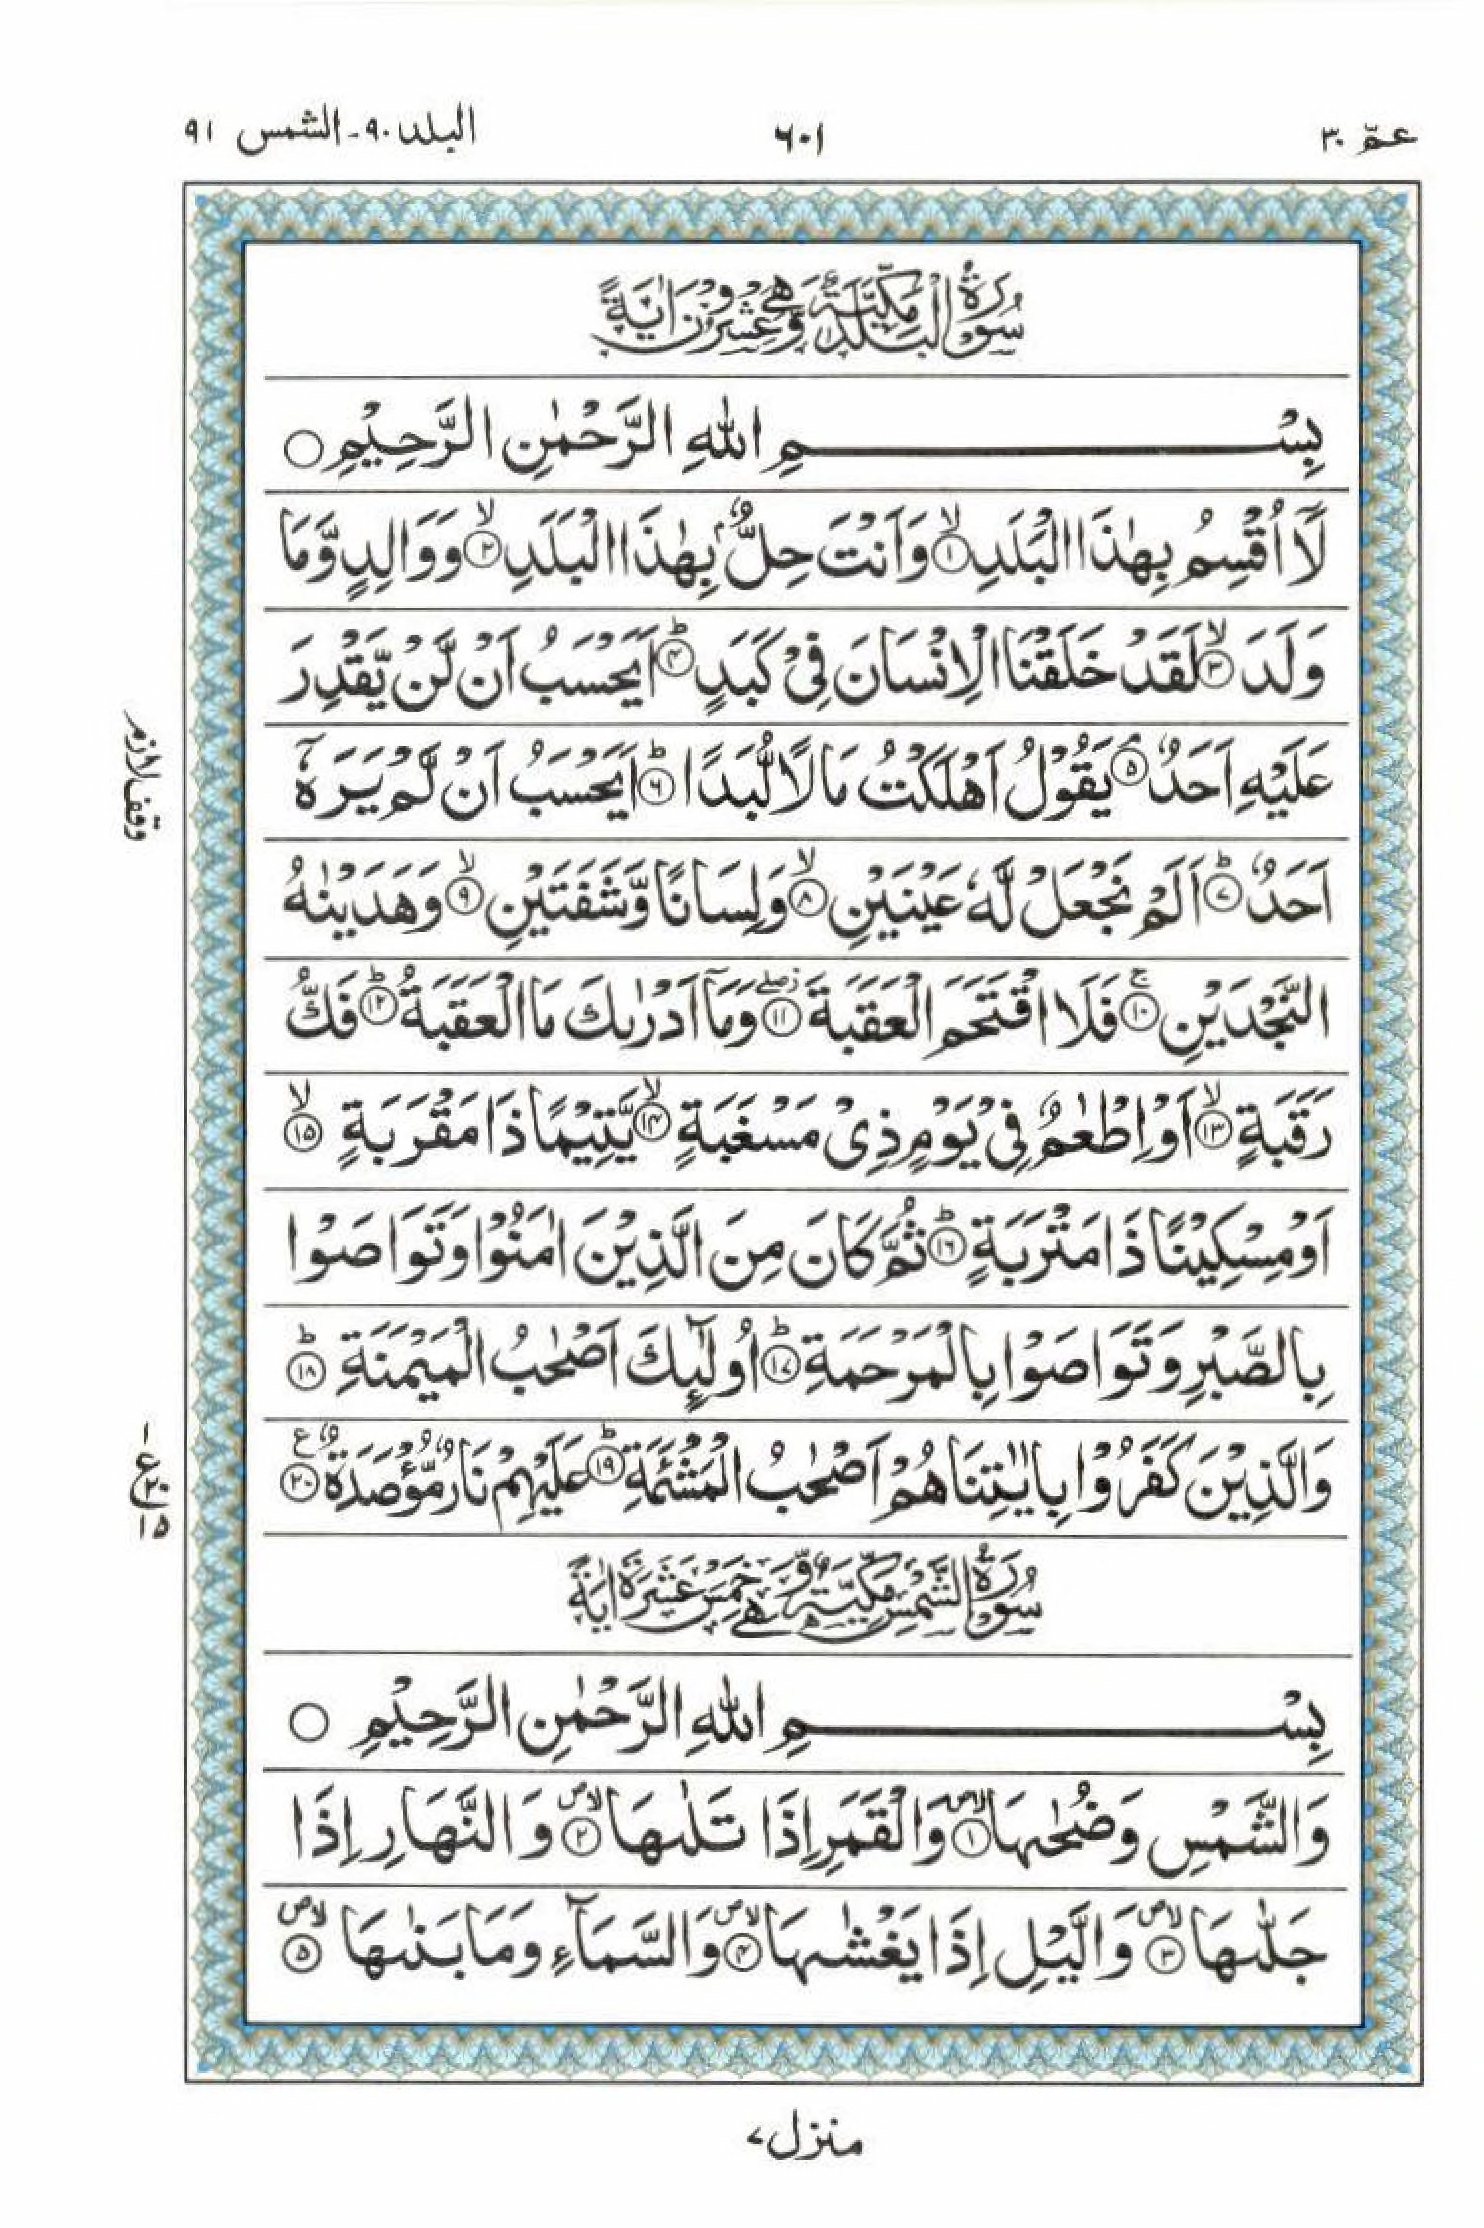 عمّ ٣٠
٦٠١
البلد ٩٠ - الشمس ٩١
سُوْرَةُ الْبَلَدِ مَكِّيَّةٌ وَّهِيَ عِشْرُوْنَ اٰيَةً
بِسْمِ اللّٰهِ الرَّحْمٰنِ الرَّحِيْمِ ○
لَآ اُقْسِمُ بِهٰذَا الْبَلَدِ ۙ﴿۱﴾ وَ اَنْتَ حِلٌّۢ بِهٰذَا الْبَلَدِ ۙ﴿۲﴾ وَ وَالِدٍ وَّ مَا
وَلَدَ ۙ﴿۳﴾ لَقَدْ خَلَقْنَا الْاِنْسَانَ فِیْ كَبَدٍ ؕ﴿۴﴾ اَیَحْسَبُ اَنْ لَّنْ یَّقْدِرَ
عَلَیْهِ اَحَدٌ ۘ﴿۵﴾ یَقُوْلُ اَهْلَكْتُ مَالًا لُّبَدًا ؕ﴿۶﴾ اَیَحْسَبُ اَنْ لَّمْ یَرَهٗۤ
اَحَدٌ ؕ﴿۷﴾ اَلَمْ نَجْعَلْ لَّهٗ عَیْنَیْنِ ۙ﴿۸﴾ وَ لِسَانًا وَّ شَفَتَیْنِ ۙ﴿۹﴾ وَ هَدَیْنٰهُ
النَّجْدَیْنِ ۚ﴿۱۰﴾ فَلَا اقْتَحَمَ الْعَقَبَةَ ۫ۖ﴿۱۱﴾ وَ مَاۤ اَدْرٰىكَ مَا الْعَقَبَةُ ؕ﴿۱۲﴾ فَكُّ
رَقَبَةٍ ۙ﴿۱۳﴾ اَوْ اِطْعٰمٌ فِیْ یَوْمٍ ذِیْ مَسْغَبَةٍ ۙ﴿۱۴﴾ یَّتِیْمًا ذَا مَقْرَبَةٍ ۙ﴿۱۵﴾
اَوْ مِسْكِیْنًا ذَا مَتْرَبَةٍ ؕ﴿۱۶﴾ ثُمَّ كَانَ مِنَ الَّذِیْنَ اٰمَنُوْا وَ تَوَاصَوْا
بِالصَّبْرِ وَ تَوَاصَوْا بِالْمَرْحَمَةِ ؕ﴿۱۷﴾ اُولٰٓىِٕكَ اَصْحٰبُ الْمَیْمَنَةِ ؕ﴿۱۸﴾
وَ الَّذِیْنَ كَفَرُوْا بِاٰیٰتِنَا هُمْ اَصْحٰبُ الْمَشْـَٔمَةِ ؕ﴿۱۹﴾ عَلَیْهِمْ نَارٌ مُّؤْصَدَةٌ ۠﴿۲۰﴾
سُوْرَةُ الشَّمْسِ مَكِّيَّةٌ وَّهِيَ خَمْسَ عَشْرَةَ اٰيَةً
بِسْمِ اللّٰهِ الرَّحْمٰنِ الرَّحِيْمِ ○
وَ الشَّمْسِ وَ ضُحٰىهَا ﴿۱﴾ وَ الْقَمَرِ اِذَا تَلٰىهَا ﴿۲﴾ وَ النَّهَارِ اِذَا
جَلّٰىهَا ﴿۳﴾ وَ الَّیْلِ اِذَا یَغْشٰىهَا ﴿۴﴾ وَ السَّمَآءِ وَ مَا بَنٰىهَا ﴿۵﴾
وقف لازم
١
ع ٢٠
١٥
منزل ٧